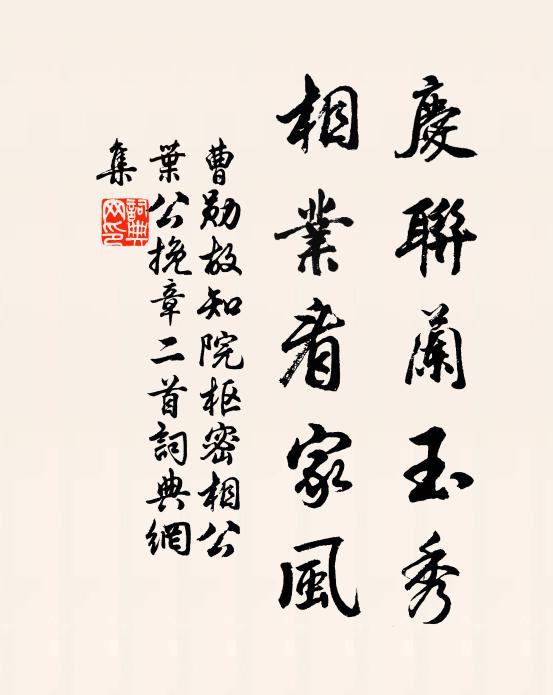 慶聯蘭玉秀
相業看家風
曹勛故知院枢密相公
葉公挽章二首詞典網
集